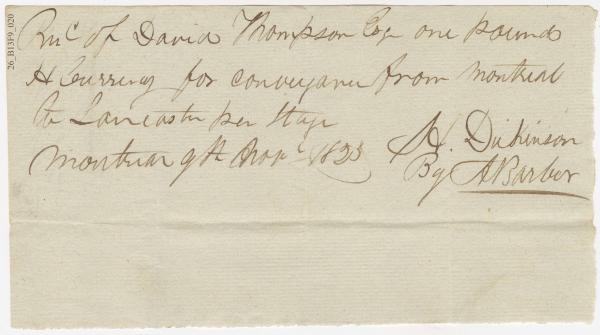 26_B13F9_020
Recd of David Thompson Esqr one pound
H Currency for conveyance from Montreal
to Lancaster per Stage
Montreal 9th Novr 1823
H. Dickinson
By A Barber